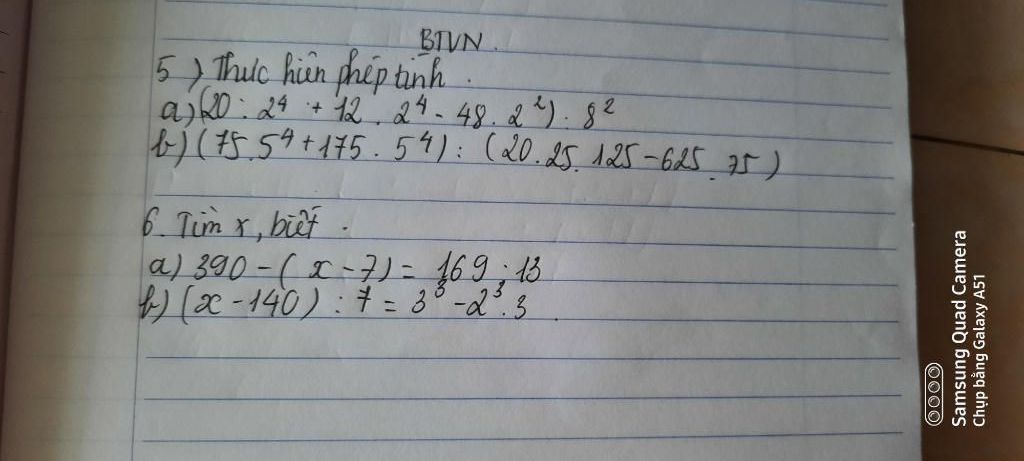 BTVN.
5) Thực hiện phép tính.
a) (20 : 2⁴ + 12 . 2⁴ - 48 . 2²) : 8²
b) (75.5⁴ + 175 . 5⁴) : (20.25.125 - 625.75)
6. Tìm x, biết.
a) 390 - (x - 7) = 169 : 13
b) (x - 140) : 7 = 3³ - 2³.3
Samsung Quad Camera
Chụp bằng Galaxy A51